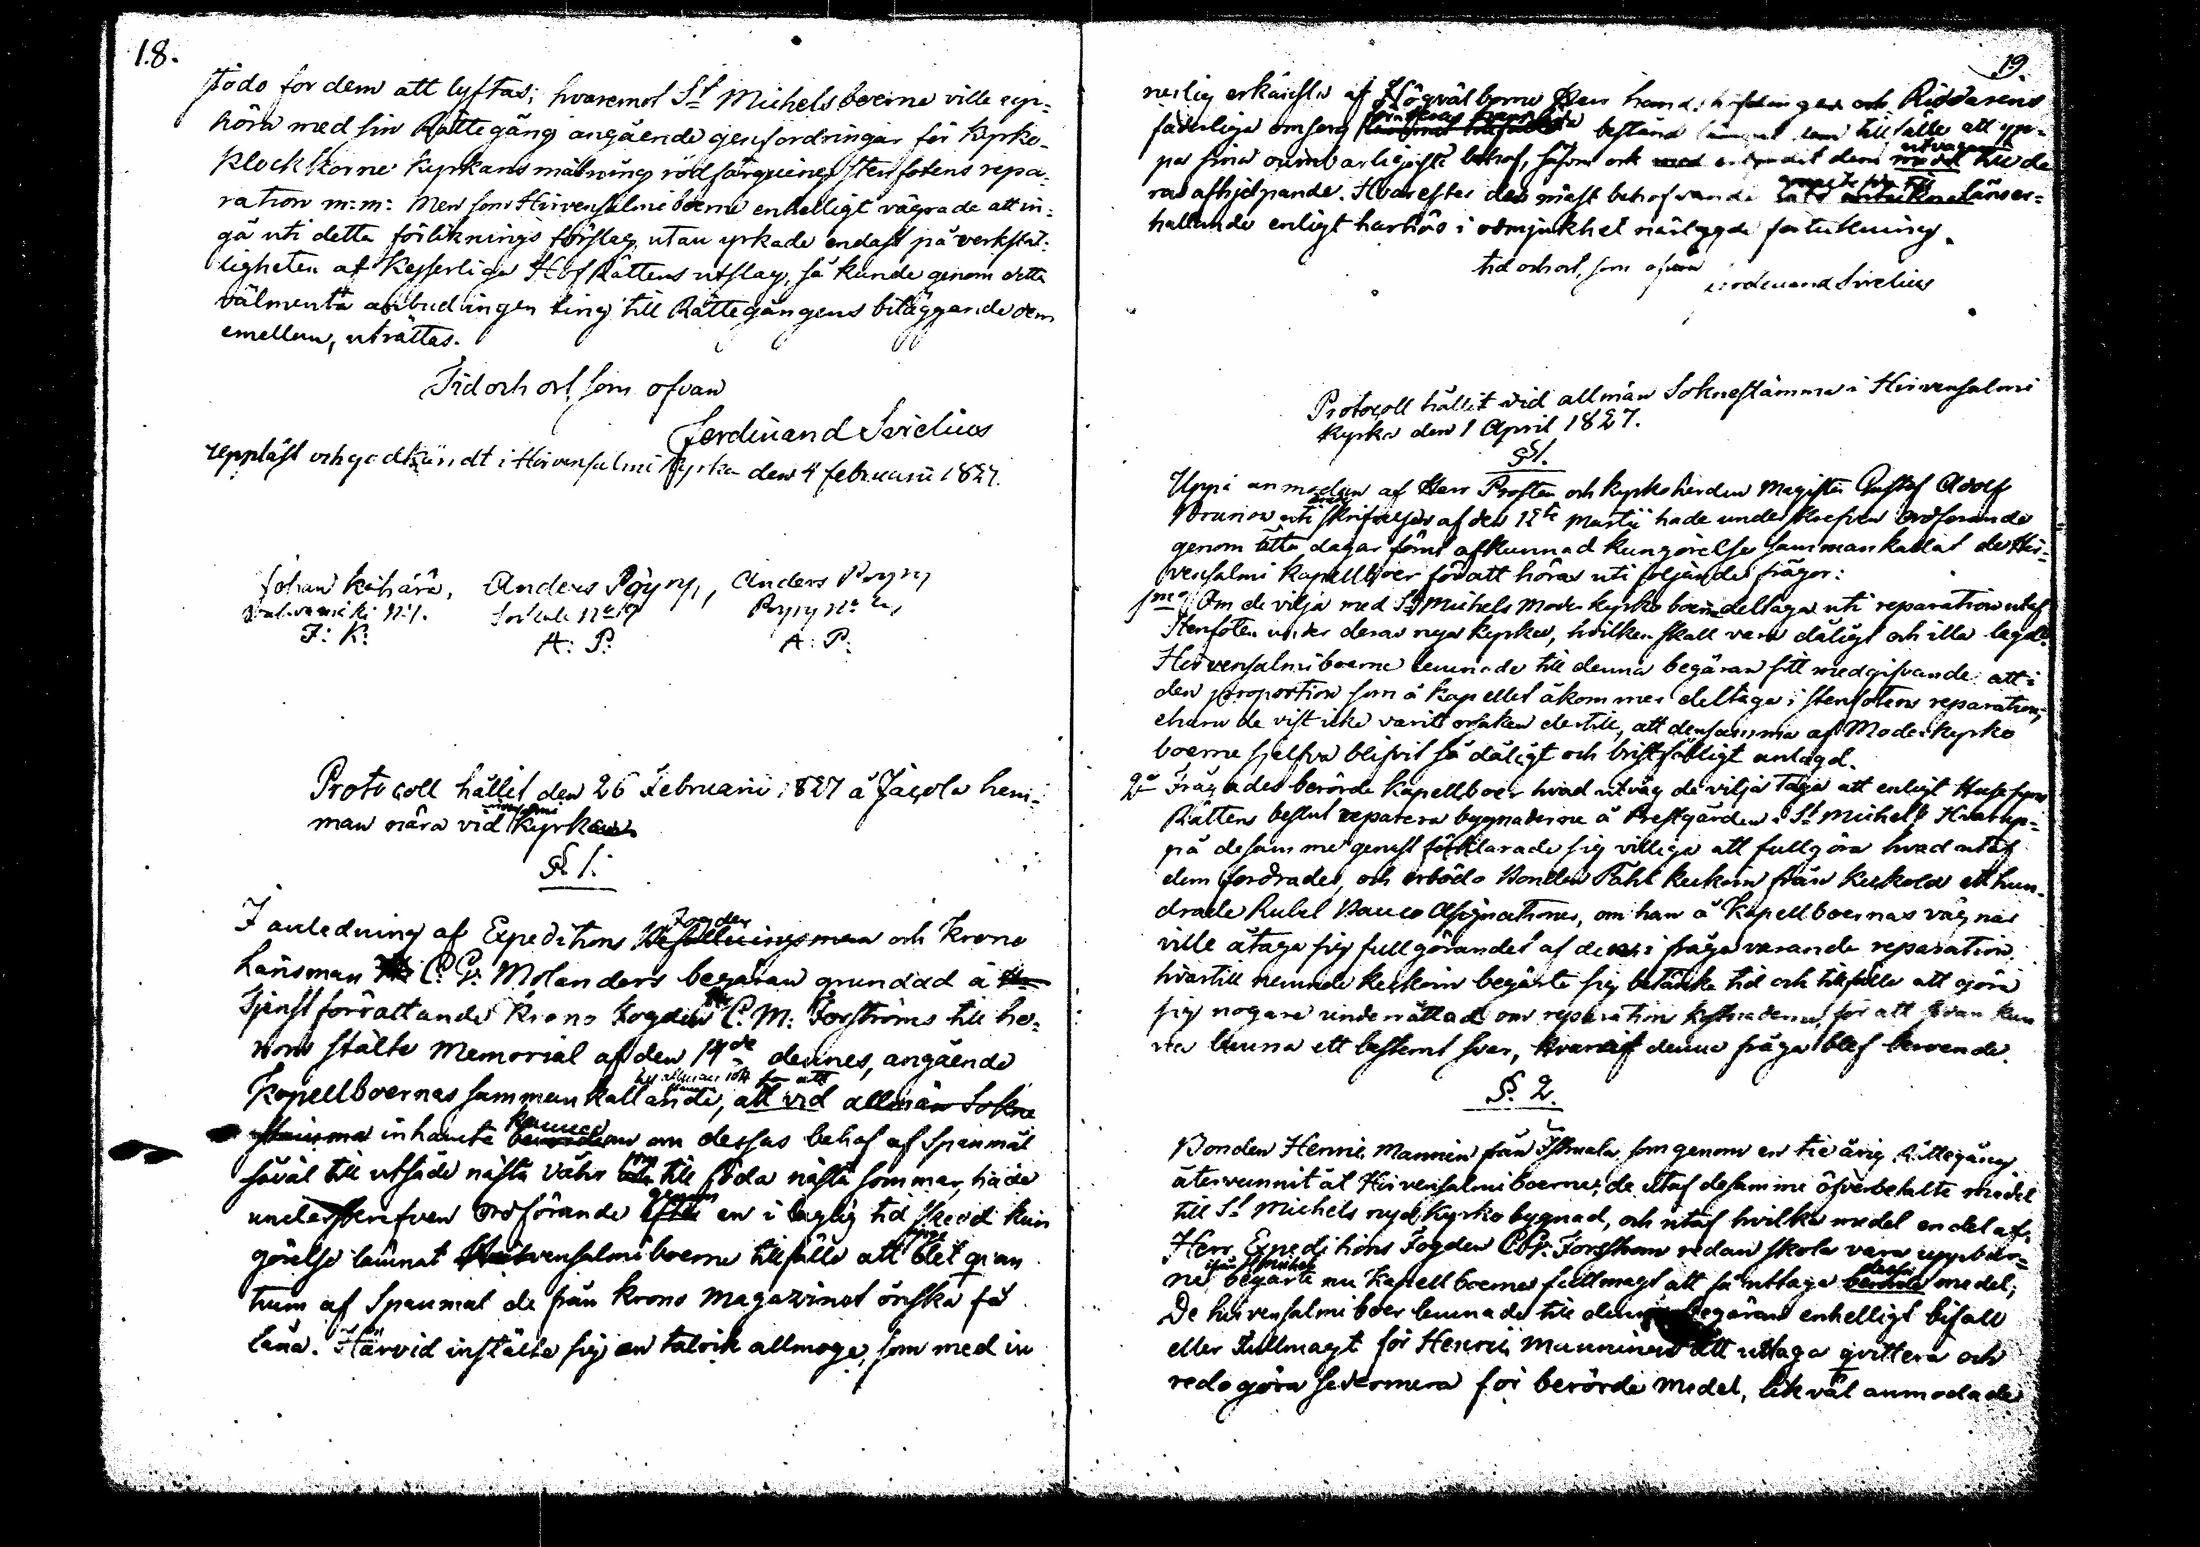 18.
stodo for dem att lyftas; hvaremot St Michelsboerne ville upp=
höra med sin Rättegång angående genfordringar för Kyrko-
Klockorne Kyrkans målning rödfärgning Stenfotens repa-
ration m:m: Men som Hirvensalmiboerne enhelligt vägrade att in-
gå uti detta förliknings förslag utan yrkade endast på verkstäl-
ligheten af Kejserliga HofRättens utslag, så kunde genom detta
välmenta anbud ingen ting till Rättegångens biläggande dem
emellan, uträttas.
Tid och ort som ofvan
Ferdinand Sirelius
Uppläst och godkändt i Hirvensalmi Kyrka den 4 februarii 1827.
Johan Anders Pöyry, Anders Pöyry
N:1. Pöyry No
J: K: A: P: A: P:
Protocoll hållit den 26 Februarii 1827 å Jacola hem-
man nära vid Kyrkan
§ 1.
I anledning af Expeditions Fogden och Krono
Länsman C. G. Molanders begäran grundad å
Tjenst förrättande Krono Fogden C. M: Forströms till ho-
nom stälte Memorial af den 14de dennes, angående
Kapellboernas sammankallande, att vid allmän Sokne
stämma inhämta kännedom om dessas behof af Spanmål
såväl till utsäde nästa vahr som till föda nästa sommar, hade
underskrefven Ordförande genom en i laglig tid skedd kun
görelse lämnat Hirvensalmiboerne tillfälle att det qvan
tum af Spanmål de från Krono Magazinet önska få
låna. Härvid instälte sig en talrik allmoge, som med in
19.
nerlig erkänsla af Högvälborne Herr Landshöfdingen och Riddarens
faderliga omsorg bestånd tillfälle att yp-
pa sina oumbärligaste behof, såsom ock dem utvägar till de
ras afhjelpande. Hvarefter de mäst behöfvande låns er=
hållande enligt härhos i ödmjukhet närlagde förtekning.
tid och ort, som ofvan
Ferdinand Sirelius
Protocoll hållit vid allmän Soknestämma i Hirvensalmi
Kyrka den 1 April 1827.
§ 1.
Uppå anmodan af Herr Prosten och Kyrkoherden Magister Gustaf Adolf
uti skrifvelse af den 12te Martii hade underskrefven Ordförande
genom åtta dagar förut afkunnad kungörelse sammankallat de Hir-
vensalmi Kapellboer för att höras uti följande frågor:
1mo Om de vilja med St Michels Moderkyrkoboerne deltaga uti reparation utaf
Stenfoten under deras nya Kyrka, hvilken skall vara dåligt och illa lagd.
Hirvensalmiboerne lemnade till denna begäran sitt medgifvande att i
den proportion som å Kapellet åkommer deltaga i stenfotens reparation,
ehuru de vist icke varit orsaken dertill, att densamma af Moderkyrko
boerne sjelfva blifvit så dåligt och bristfälligt anlagd.
2o Frågades berörde Kapellboer hvad utväg de vilja taga att enligt Husesyns
Rättens beslut reparera bygnaderne å Prestgården i St Michel? Hvarup-
på desamme genast förklarade sig villige att fullgöra hvad utaf
dem fordrades, och erbödo Bonden Påhl Keskein från Keskola ett hun-
drade Rubel Banco Assignationer, om han å Kapellboernas vägnar
ville åtaga sig fullgörandet af den i fråga varande reparation
hvartill nemnde Keskein begärte sig betänke tid och tillfälle att göra
sig nogare underrättad om reparation kostnaderna, för att kun
na lemna ett bestemt svar, hvaraf denna fråga blef beroende.
§. 2.
Bonden Henric Manninen från som genom en tie årig Rättegång
återvunnit åt Hirvensalmiboerne, de utaf desamme öfverbetalte medel
till St Michels nya Kyrko bygnad, och utaf hvilka medel en del af
Herr Expeditions Fogden Forsström redan skola vara uppbur-
ne begärte nu Kapellboernas fullmagt att få uttaga dessa medel;
De hirvensalmiboer lemnade till denna begäran enhelligt bifall
eller Fullmagt för Henric Manninen att uttaga qvittera och
redogöra sedermera för berörde medel, likväl anmodade